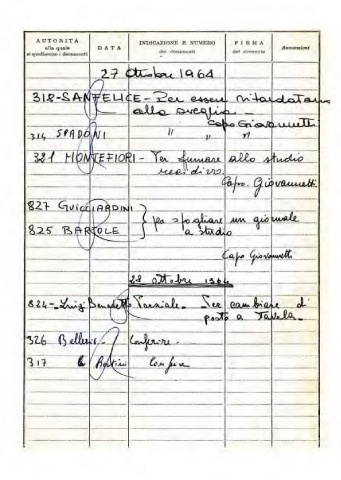 AUTORITÀ alla quale si spediscono i documenti DATA INDICAZIONE E NUMERO dei documenti FIRMA del ricevente Annotazioni
27 Ottobre 1964
318-SANFELICE - Per essere ritardatario
alla sveglia. -
Capo Giovannetti
314 SPADONI " " "
321 MONTEFIORI - Per fumare allo studio
recidivo.
Capo. Giovannetti
827 GUICCIARDINI } per sfogliare un giornale
825 BARTOLE a studio
Capo Giovannetti
28 ottobre 1964
824 - Luigi Benedetto - Per cambiare di
posto a Tavola -
326 Conferire.
317